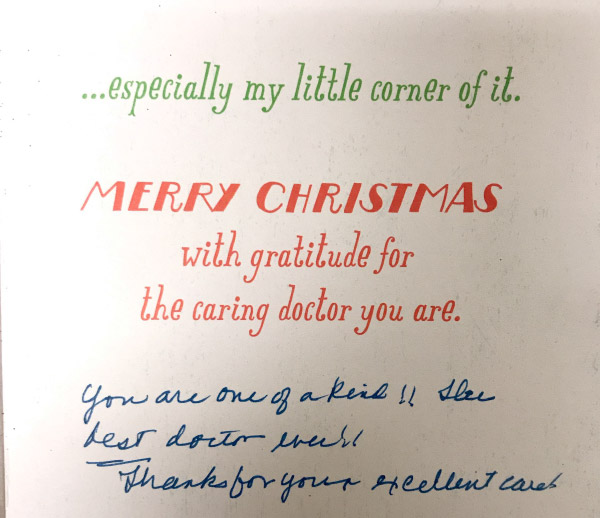 ...especially my little corner of it.
MERRY CHRISTMAS
with gratitude for
the caring doctor you are.
You are one of a kind!! The
best doctor ever!!
Thanks for your excellent care!